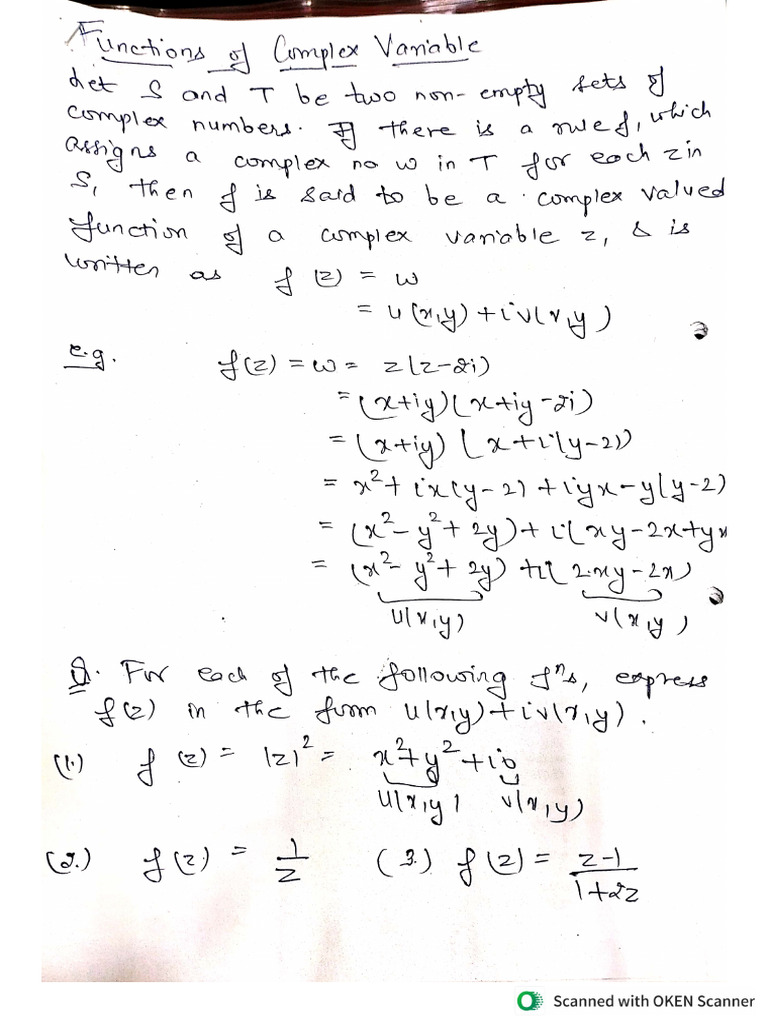 Functions of Complex Variable
Let S and T be two non-empty sets of
complex numbers. If there is a rule f, which
assigns a complex no w in T for each z in
S, then f is said to be a complex valued
function of a complex variable z, & is
written as f(z) = w
= u(x,y) + iv(x,y)
e.g. f(z) = w = z(z-2i)
= (x+iy)(x+iy-2i)
= (x+iy)(x+i(y-2))
= x²+ ix(y-2) + iyx - y(y-2)
= (x²- y²+ 2y) + i(xy-2x+yx
= (x²- y²+ 2y) + i(2xy-2x)
u(x,y) v(x,y)
Q. For each of the following fⁿs, express
f(z) in the form u(x,y)+iv(x,y).
(1.) f(z) = |z|² = x²+y²+i0
u(x,y) v(x,y)
(2.) f(z) = 1/z (3.) f(z) = z-1/1+2z
Scanned with OKEN Scanner